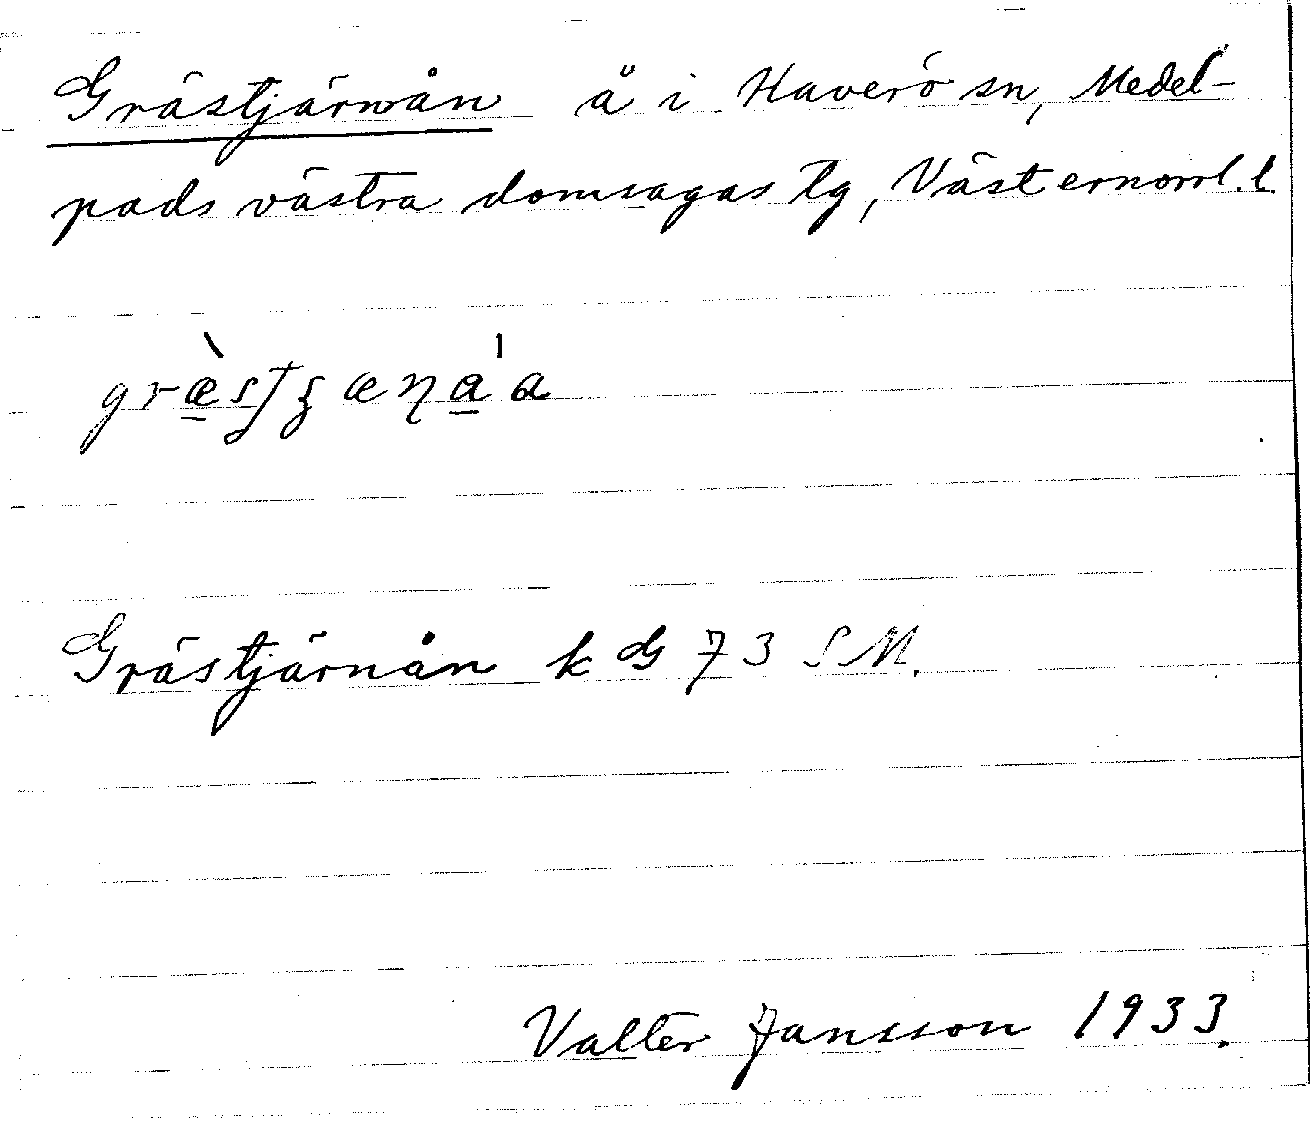 Grästjärnån å i Haverö sn, Medel-
pads västra domsagas tg, Västernorrl. l.
Grästjärnån k G 73 SM.
Valter Jansson 1933.